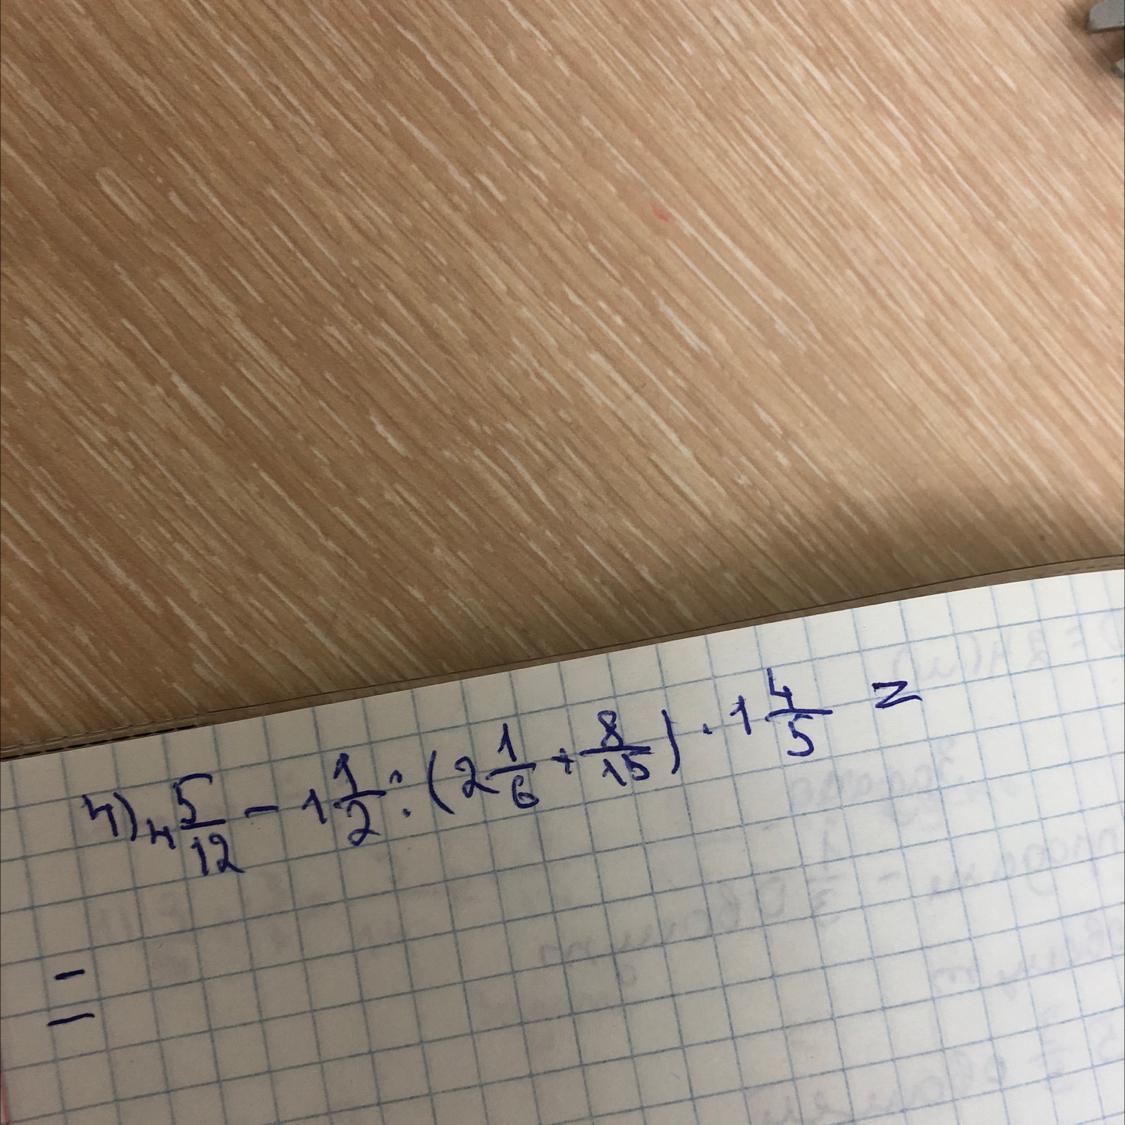 4) 4 5/12 - 1 1/2 : (2 1/6 + 8/15) · 1 4/5 =
=